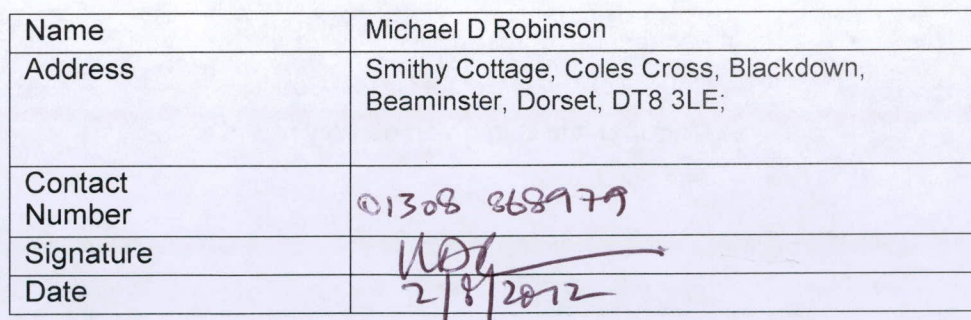 Name Michael D Robinson
Address Smithy Cottage, Coles Cross, Blackdown,
Beaminster, Dorset, DT8 3LE;
Contact
Number 01308 868979
Signature
Date 2/8/2012